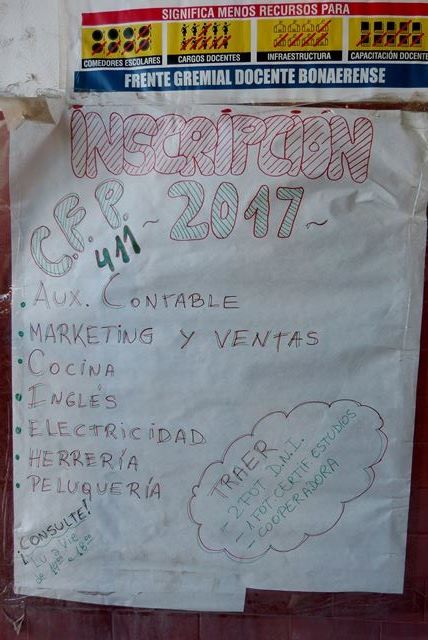 SIGNIFICA MENOS RECURSOS PARA
COMEDORES ESCOLARES CARGOS DOCENTES INFRAESTRUCTURA CAPACITACIÓN DOCENTE
FRENTE GREMIAL DOCENTE BONAERENSE
INSCRIPCIÓN
C.F.P. 411 ~ 2017 ~
• AUX. CONTABLE
• MARKETING Y VENTAS
• COCINA
• INGLÉS
• ELECTRICIDAD
• HERRERÍA
• PELUQUERÍA
TRAER
- 2 FOT D.N.I.
- 1 FOT CERTIF ESTUDIOS
- COOPERADORA
¡CONSULTE!
Lu a Vie
de